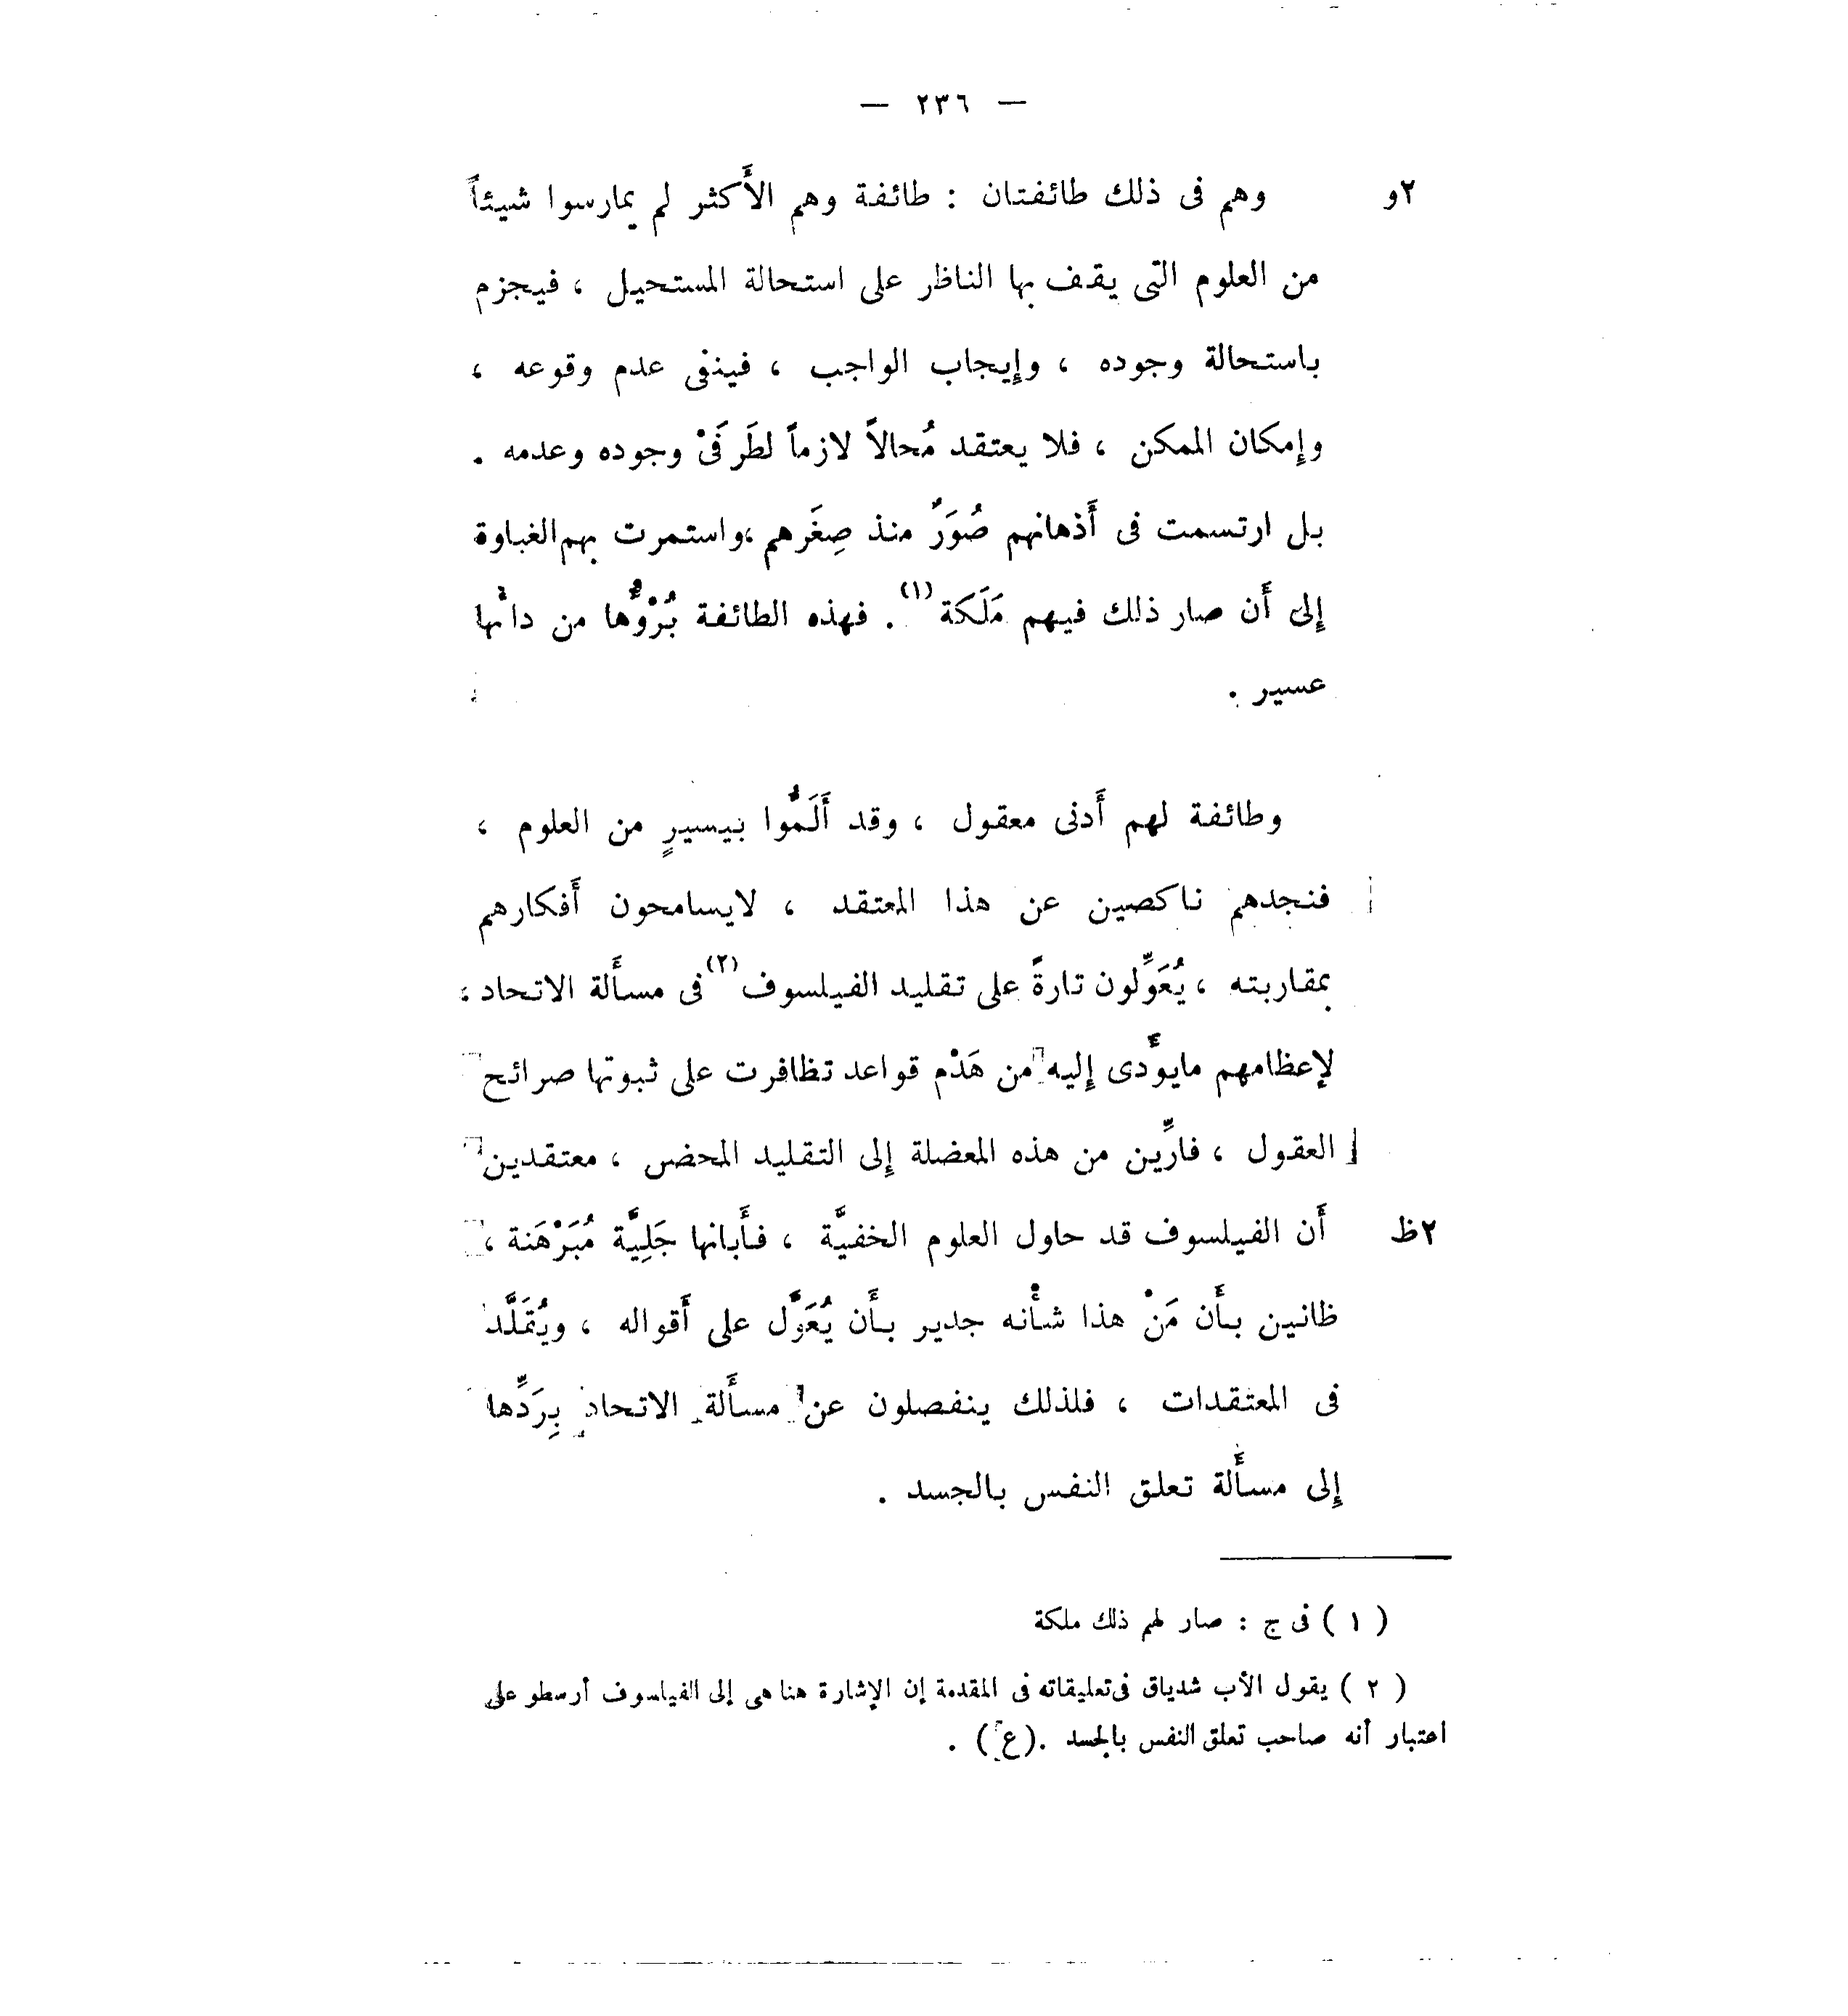 — ٢٣٦ —
٢و وهم فى ذلك طائفتان : طائفة وهم الأَكثر لم يمارسوا شيئاً
من العلوم التى يقف بها الناظر على استحالة المستحيل ، فيجزم
باستحالة وجوده ، وإيجاب الواجب ، فينفى عدم وقوعه ،
وإمكان الممكن ، فلا يعتقد مُحالاً لازماً لطَرفَىْ وجوده وعدمه .
بل ارتسمت فى أَذهانهم صُوَرٌ منذ صِغَرهم ،واستمرت بهم الغباوة
إلى أَن صار ذلك فيهم مَلَكة (١) . فهذه الطائفة بُرْؤُها من دائها
عسير .
وطائفة لهم أَدنى معقول ، وقد أَلَمُّوا بيسيرٍ من العلوم ،
فنجدهم ناكصين عن هذا المعتقد ، لايسامحون أَفكارهم
بمقاربته ، يُعَوِّلون تارةً على تقليد الفيلسوف (٢) فى مسأَلة الاتحاد ،
لإعظامهم مايؤَدى إليه من هَدْم قواعد تظافرت على ثبوتها صرائح
العقول ، فارِّين من هذه المعضلة إلى التقليد المحض ، معتقدين
٢ظ أَن الفيلسوف قد حاول العلوم الخفيَّة ، فأَبانها جَلِيَّة مُبَرْهَنة ،
ظانين بأَن مَنْ هذا شأْنه جدير بأَن يُعَوَّل على أَقواله ، ويُقَلَّد
فى المعتقدات ، فلذلك ينفصلون عن مسأَلة الاتحاد بِرَدِّها
إلى مسأَلة تعلق النفس بالجسد .
( ١ ) فى ج : صار لهم ذلك ملكة
( ٢ ) يقول الأب شدياق فى تعليقاته فى المقدمة إن الإشارة هنا هى إلى الفيلسوف أرسطو على
اعتبار أنه صاحب تعلق النفس بالجسد .(ع) .